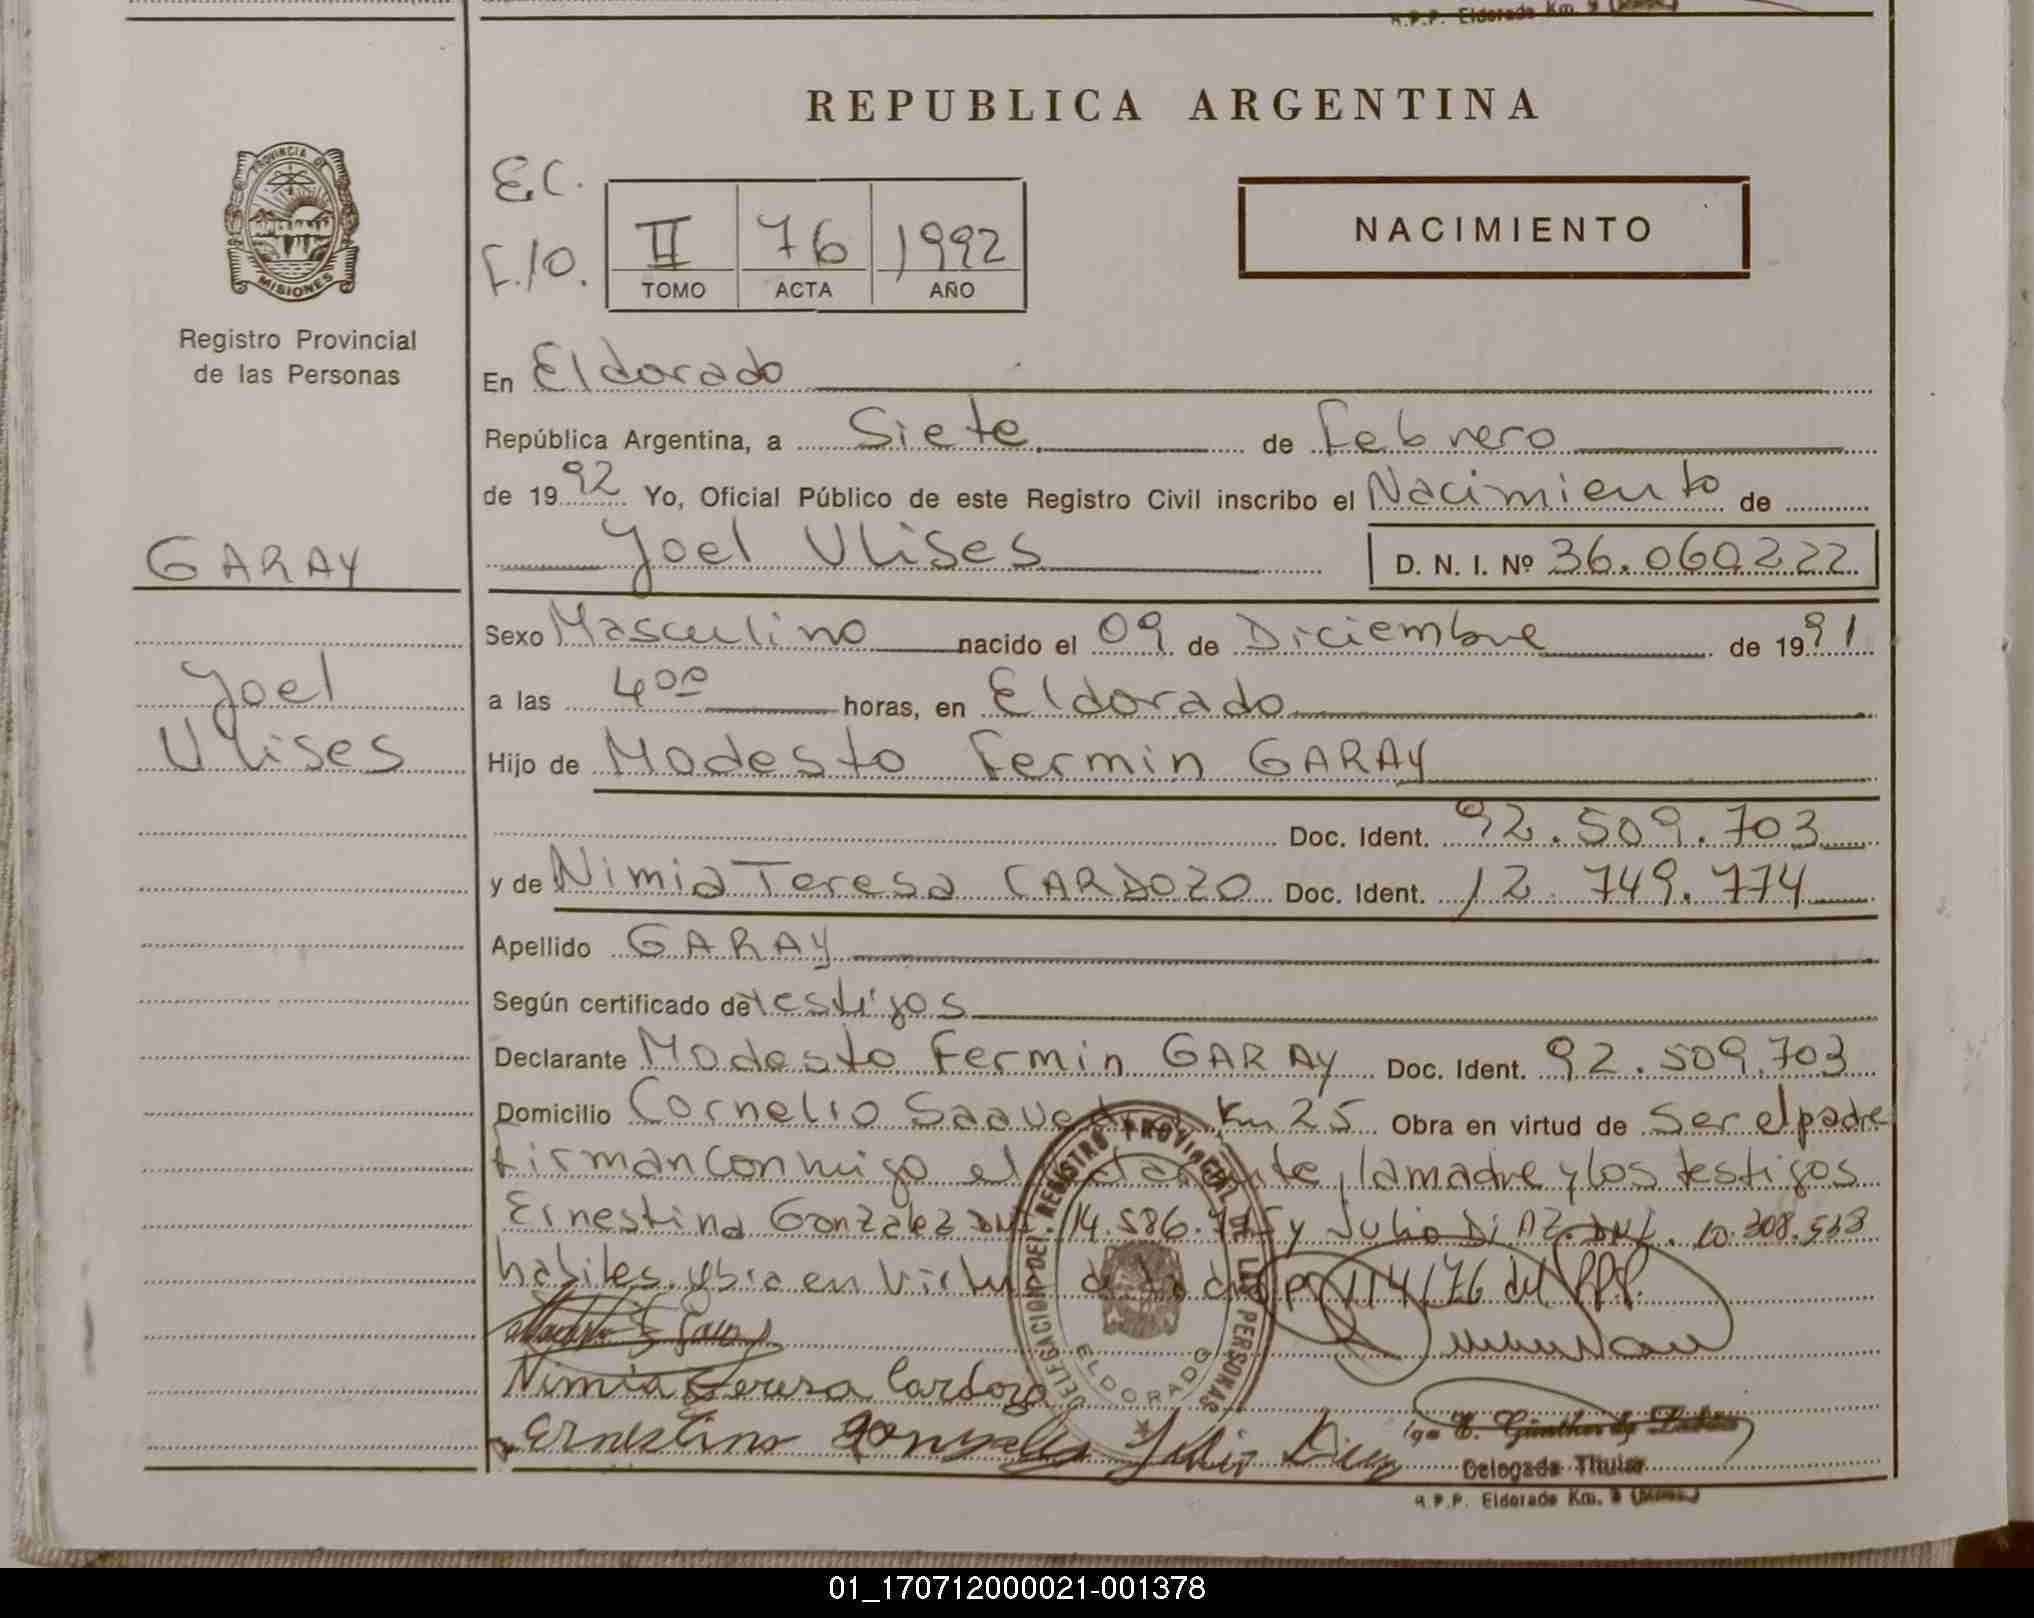 R.P.P. Eldorado Km. 9
REPUBLICA ARGENTINA
PROVINCIA DE
MISIONES
Registro Provincial
de las Personas
E.C.
F./O.
II 76 1992
TOMO ACTA AÑO
NACIMIENTO
En Eldorado
República Argentina, a Siete de Febrero
de 1992 Yo, Oficial Público de este Registro Civil inscribo el Nacimiento de
Joel Ulises D. N. I. Nº 36.060222
GARAY
Joel
Ulises
Sexo Masculino nacido el 09 de Diciembre de 1991
a las 400 horas, en Eldorado
Hijo de Modesto Fermin GARAY
Doc. Ident. 92.509.703
y de Nimia Teresa CARDOZO Doc. Ident. 12.749.774
Apellido GARAY
Según certificado de testigos
Declarante Modesto Fermin GARAY Doc. Ident. 92.509.703
Domicilio Cornelio Saavedra Km 25 Obra en virtud de Ser el padre
firman conmigo el declarante, la madre y los testigos
Ernestina Gonzalez DNI. 14.586.775 y Julio DiAZ. DNI. 10.308.538
habiles. obra en virtud de la disp 114/76 del RPP.
DELEGACION DEL REGISTRO PROVINCIAL DE LAS PERSONAS
ELDORADO
Nimia Teresa Cardozo
Ernestina Gonzalez Julio Diaz
Delegada Titular
R.P.P. Eldorado Km. 9 (Mnes.)
01_170712000021-001378